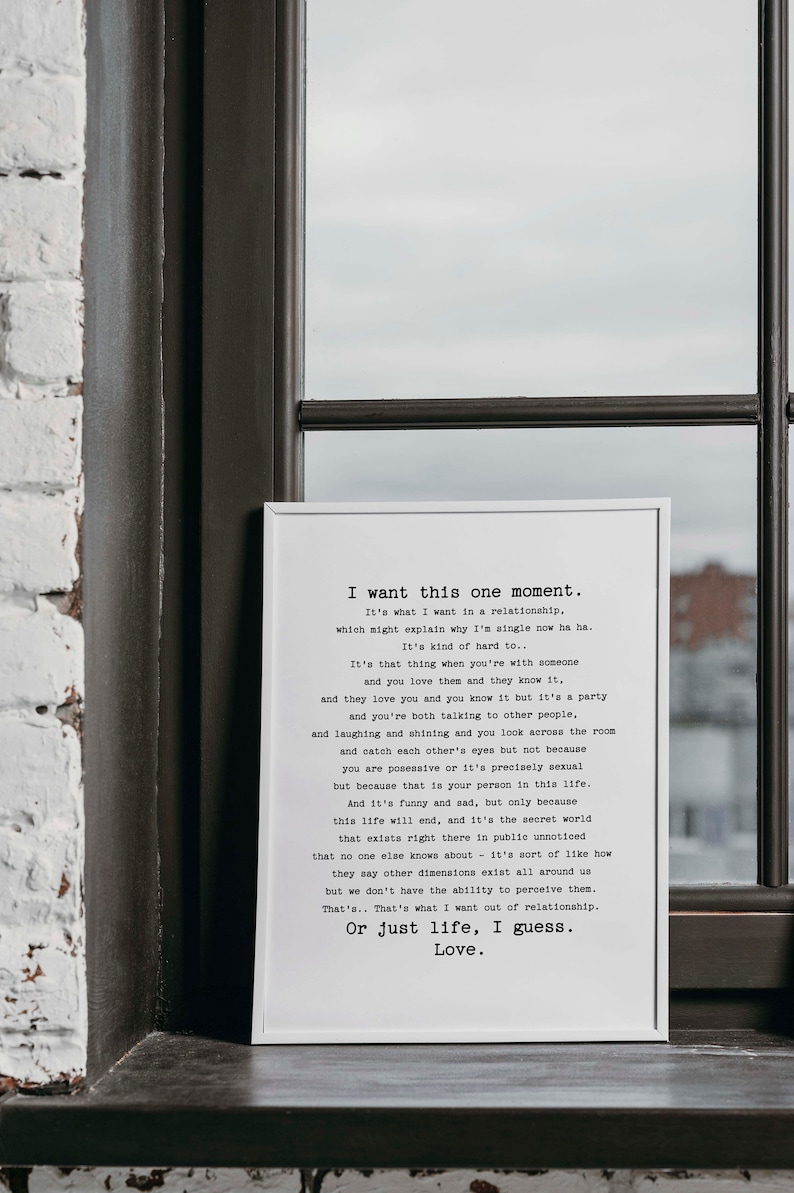 I want this one moment.
It's what I want in a relationship,
which might explain why I'm single now ha ha.
It's kind of hard to..
It's that thing when you're with someone
and you love them and they know it,
and they love you and you know it but it's a party
and you're both talking to other people,
and laughing and shining and you look across the room
and catch each other's eyes but not because
you are posessive or it's precisely sexual
but because that is your person in this life.
And it's funny and sad, but only because
this life will end, and it's the secret world
that exists right there in public unnoticed
that no one else knows about - it's sort of like how
they say other dimensions exist all around us
but we don't have the ability to perceive them.
That's.. That's what I want out of relationship.
Or just life, I guess.
Love.